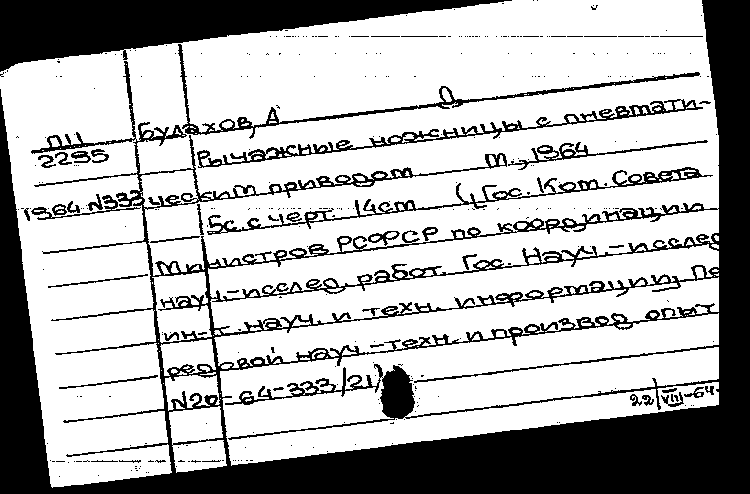 П11
2295
1964 N333
Булахов, А
Рычажные ножницы с пневмати-
ческим приводом М., 1964
5с с черт. 14см (Гос. Ком. Совета
Министров РСФСР по координации
науч.-исслед. работ. Гос. Науч.-исслед
ин-т. науч. и техн. информации, Пе
редовой науч.-техн. и производ опыт
N20-64-333/21)
22/VIII-64